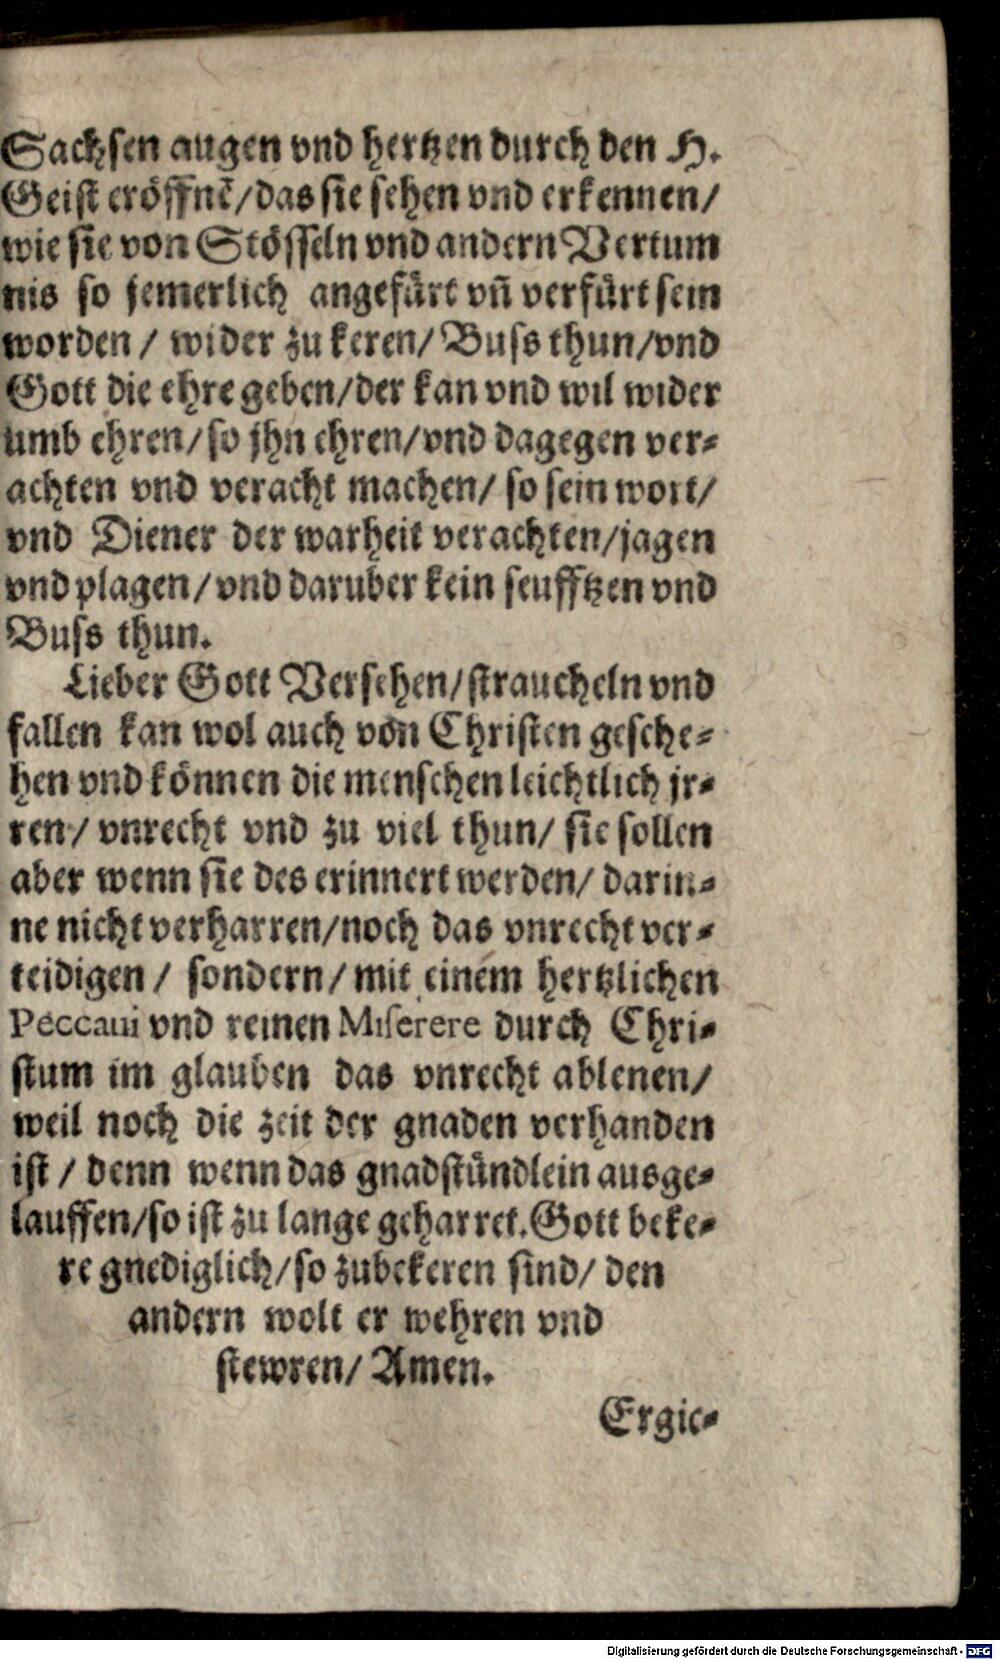 Sachsen augen vnd hertzen durch den H.
Geist eröffnē/das sie sehen vnd erkennen/
wie sie von Stösseln vnd andern Vertum
nis so jemerlich angefürt vn̄ verfürt sein
worden/ wider zu keren/Buss thun/vnd
Gott die ehre geben/der kan vnd wil wider
umb ehren/so jhn ehren/vnd dagegen ver-
achten vnd veracht machen/ so sein wort/
vnd Diener der warheit verachten/jagen
vnd plagen/vnd daruber kein seufftzen vnd
Buss thun.
Lieber Gott Versehen/straucheln vnd
fallen kan wol auch von Christen gesche-
hen vnd können die menschen leichtlich jr-
ren/ vnrecht vnd zu viel thun/ sie sollen
aber wenn sie des erinnert werden/ darin-
ne nicht verharren/noch das vnrecht ver-
teidigen/ sondern/mit einem hertzlichen
Peccaui vnd reinen Miserere durch Chri-
stum im glauben das vnrecht ablenen/
weil noch die zeit der gnaden verhanden
ist/ denn wenn das gnadstündlein ausge-
lauffen/so ist zu lange geharret.Gott beke-
re gnediglich/so zubekeren sind/ den
andern wolt er wehren vnd
stewren/ Amen.
Ergie-
Digitalisierung gefördert durch die Deutsche Forschungsgemeinschaft - DFG